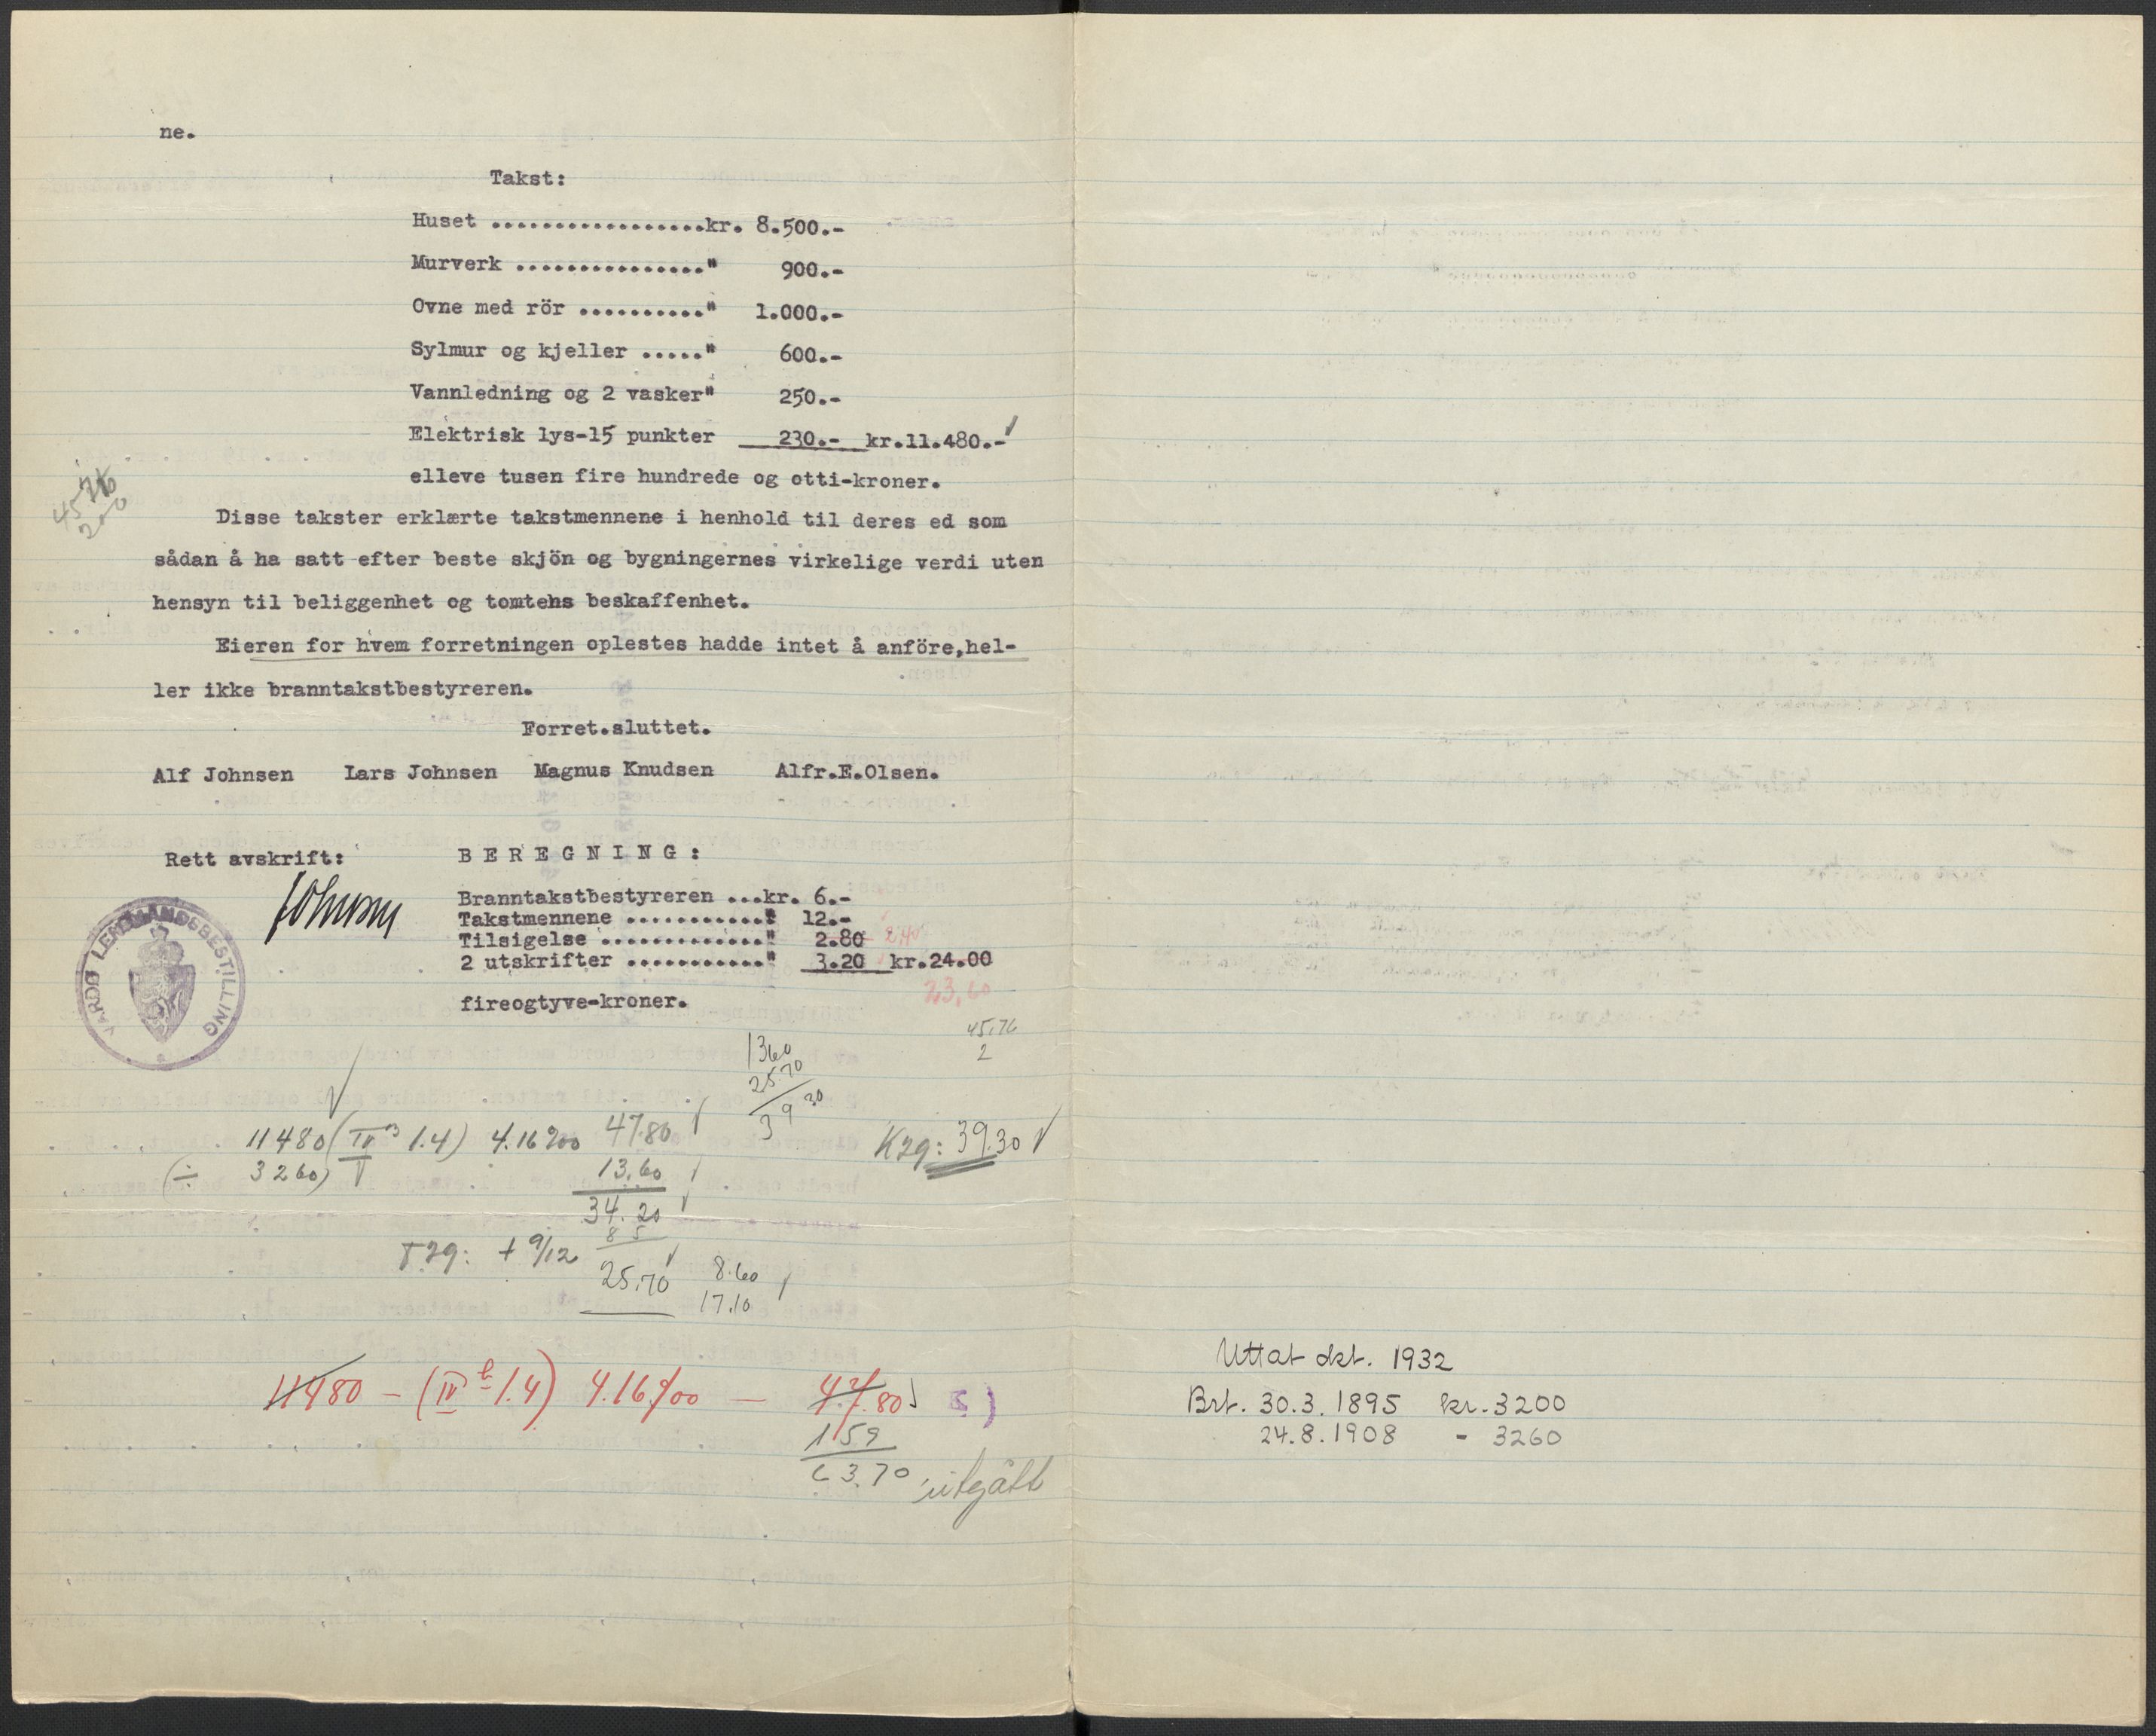 ne.
Takst:
Huset .................kr. 8.500.-
Murverk ..............." 900.-
Ovne med rör .........." 1.000.-
Sylmur og kjeller ....." 600.-
Vannledning og 2 vasker" 250.-
Elektrisk lys-15 punkter 230.- kr.11.480.-
elleve tusen fire hundrede og otti-kroner.
Disse takster erklærte takstmennene i henhold til deres ed som
sådan å ha satt efter beste skjön og bygningernes virkelige verdi uten
hensyn til beliggenhet og tomtens beskaffenhet.
Eieren for hvem forretningen oplestes hadde intet å anföre,hel-
ler ikke branntakstbestyreren.
Forret.sluttet.
Alf Johnsen Lars Johnsen Magnus Knudsen Alfr.E.Olsen.
Rett avskrift:
Johnsen
VARDØ LENSMANDSBESTILLING
BEREGNING:
Branntakstbestyreren ...kr. 6.-
Takstmennene ............" 12.-
Tilsigelse ............." 2.80 2,40
2 utskrifter ..........." 3.20 kr.24.00
23,60
fireogtyve-kroner.
45.76
2
13 60
25.70
39 30
11480 (IV B 1.4) 4.16 %00 47.80
(÷ 3260) 13.60
34.20
8 5
T.29: + 9/12
25.70 8.60
17.10
K29: 39.30
11480 - (IV b 1.4) 4.16 %00 - 47.80
159
63.70 utgått
Uttat okt. 1932
Brt. 30.3.1895 kr. 3200
24.8.1908 - 3260